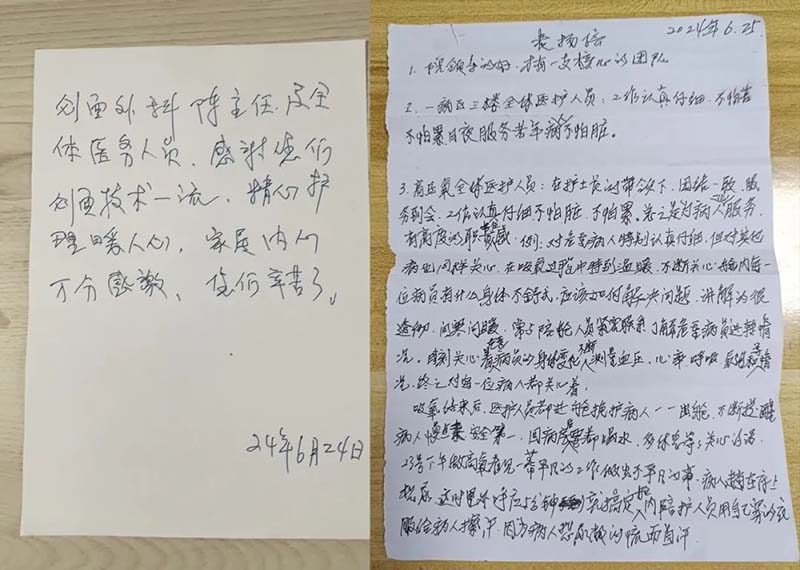 创面外科 陈主任及全
体医务人员,感谢您们
创面技术一流,精心护
理暖人心,家属内心
万分感激、您们辛苦了。
24年6月24日
表扬信
2024年6.25.
1. 院领导的好,才有一支核心的团队
2. 一病区三楼全体医护人员:工作认真仔细,不怕苦
不怕累日夜服务苦年病不怕脏。
3. 高压氧全体医护人员:在护士长的带领下,团结一致,服
务到会,工作认真仔细不怕脏,不怕累。总之是为病人服务,
有高度的职责感。例:对危重病人特别认真仔细,但对其他
病人同样关心,在吸氧过程中特别温暖,不断关心舱内每一
位病员有什么身体不舒式,应该如何解决问题,讲解为很
透彻,问寒问暖,常与陪舱人员紧密联系了解危重病员进转情
况,时刻关心着危重病员的身体变化,不断测量血压,心率,呼吸
况,终之对每一位病人都关心着。
吸氧结束后,医护人员都进舱搀护病人一一出舱,不断提醒
病人慢点走安全第一,回病房都喝水,多休息等等关心的话。
23号下午做高氧看见一幕平凡的工作做出不平凡的事,病人躺在床上
内陪护人员用自己穿的衣
服给病人擦汗,因为病人想尿憋的流面首汗